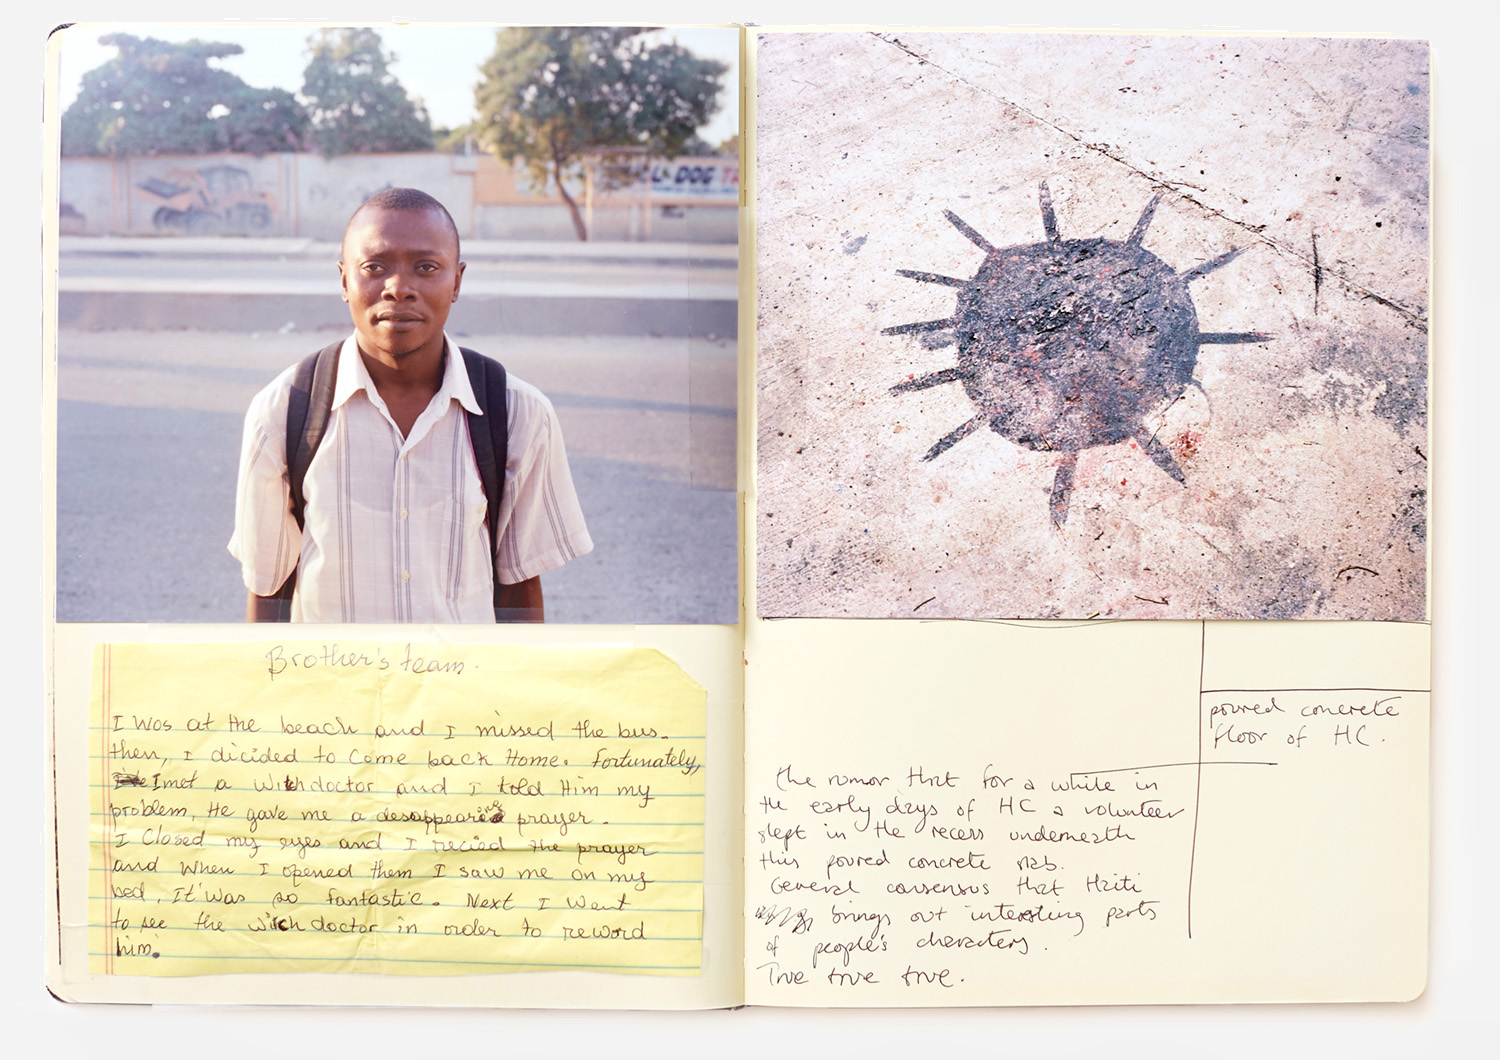 LL-DOG TA
Brother's team.
I was at the beach and I missed the bus.
then, I dicided to Come back Home. Fortunately,
I met a Witchdoctor and I told Him my
problem, He gave me a desappearing prayer.
I Closed my eyes and I recied the prayer
and when I opened them I saw me on my
bed, It was so fantastic. Next I Went
to see the witch doctor in order to reword
him.
poured concrete
floor of HC.
the rumor that for a while in
the early days of HC a volunteer
slept in the recess underneath
this poured concrete slab.
General consensus that Haiti
brings out interesting parts
of people's characters.
True true true.